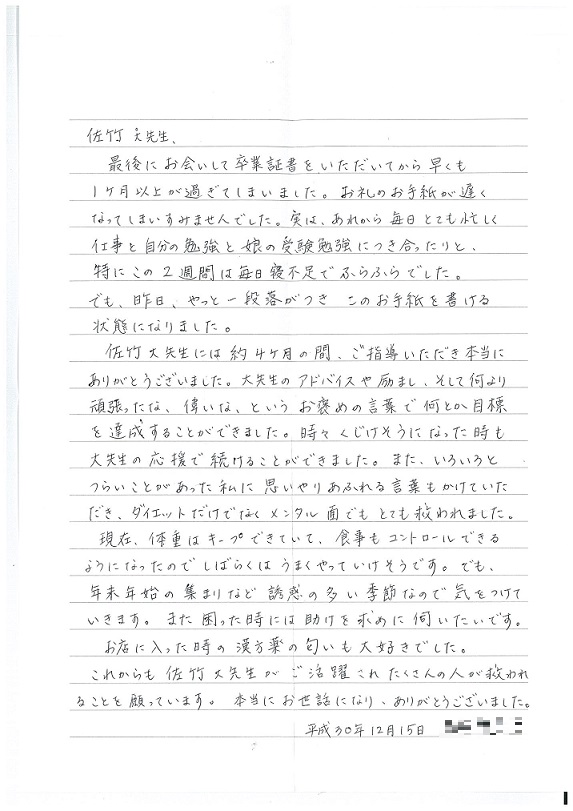 佐竹大先生、
最後にお会いして卒業証書をいただいてから早くも
1ヶ月以上が過ぎてしまいました。お礼のお手紙が遅く
なってしまいすみませんでした。実は、あれから毎日とても忙しく
仕事と自分の勉強と娘の受験勉強につき合ったりと、
特にこの2週間は毎日寝不足でふらふらでした。
でも、昨日、やっと一段落がつきこのお手紙を書ける
状態になりました。
佐竹大先生には約4ヶ月の間、ご指導いただき本当に
ありがとうございました。大先生のアドバイスや励まし、そして何より
頑張ったな、偉いな、というお褒めの言葉で何とか目標
を達成することができました。時々くじけそうになった時も
大先生の応援で続けることができました。また、いろいろと
つらいことがあった私に思いやりあふれる言葉もかけていた
だき、ダイエットだけでなくメンタル面でもとても救われました。
現在、体重はキープできていて、食事もコントロールできる
ようになったのでしばらくはうまくやっていけそうです。でも、
年末年始の集まりなど誘惑の多い季節なので気をつけて
いきます。また困った時には助けを求めに伺いたいです。
お店に入った時の漢方薬の匂いも大好きでした。
これからも佐竹大先生がご活躍されたくさんの人が救われ
ることを願っています。本当にお世話になり、ありがとうございました。
平成30年12月15日